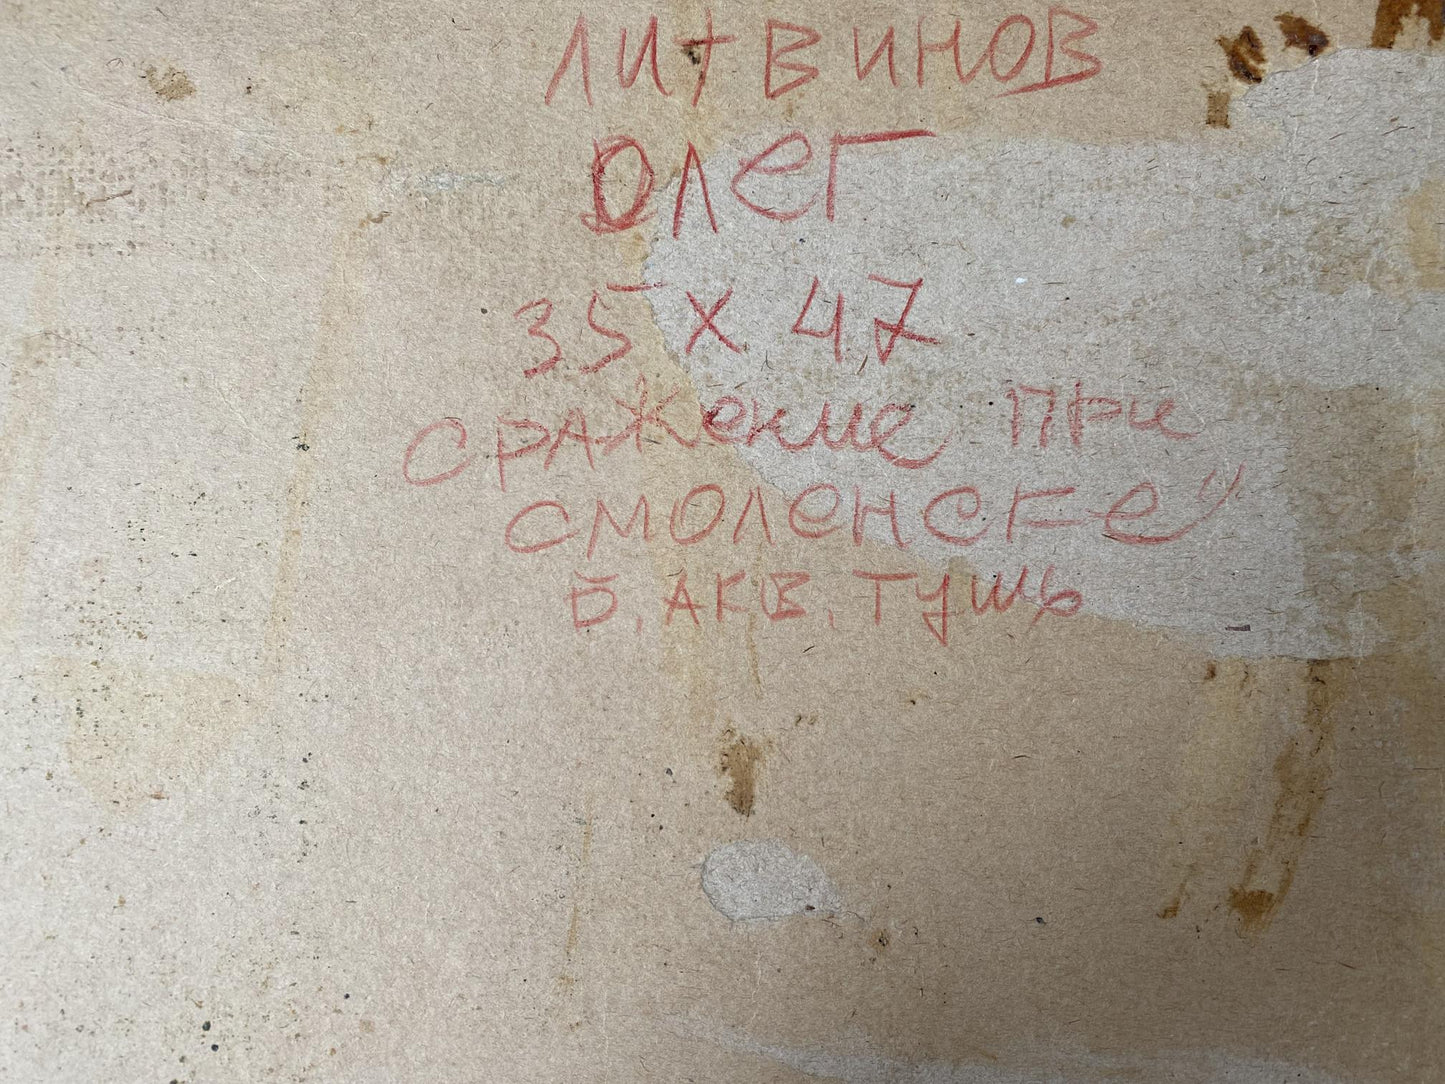 ЛИТВИНОВ
ОЛЕГ
35 х 47
СРАЖЕНИЕ ПРИ
СМОЛЕНСКЕ"
Б. АКВ. ТУШЬ